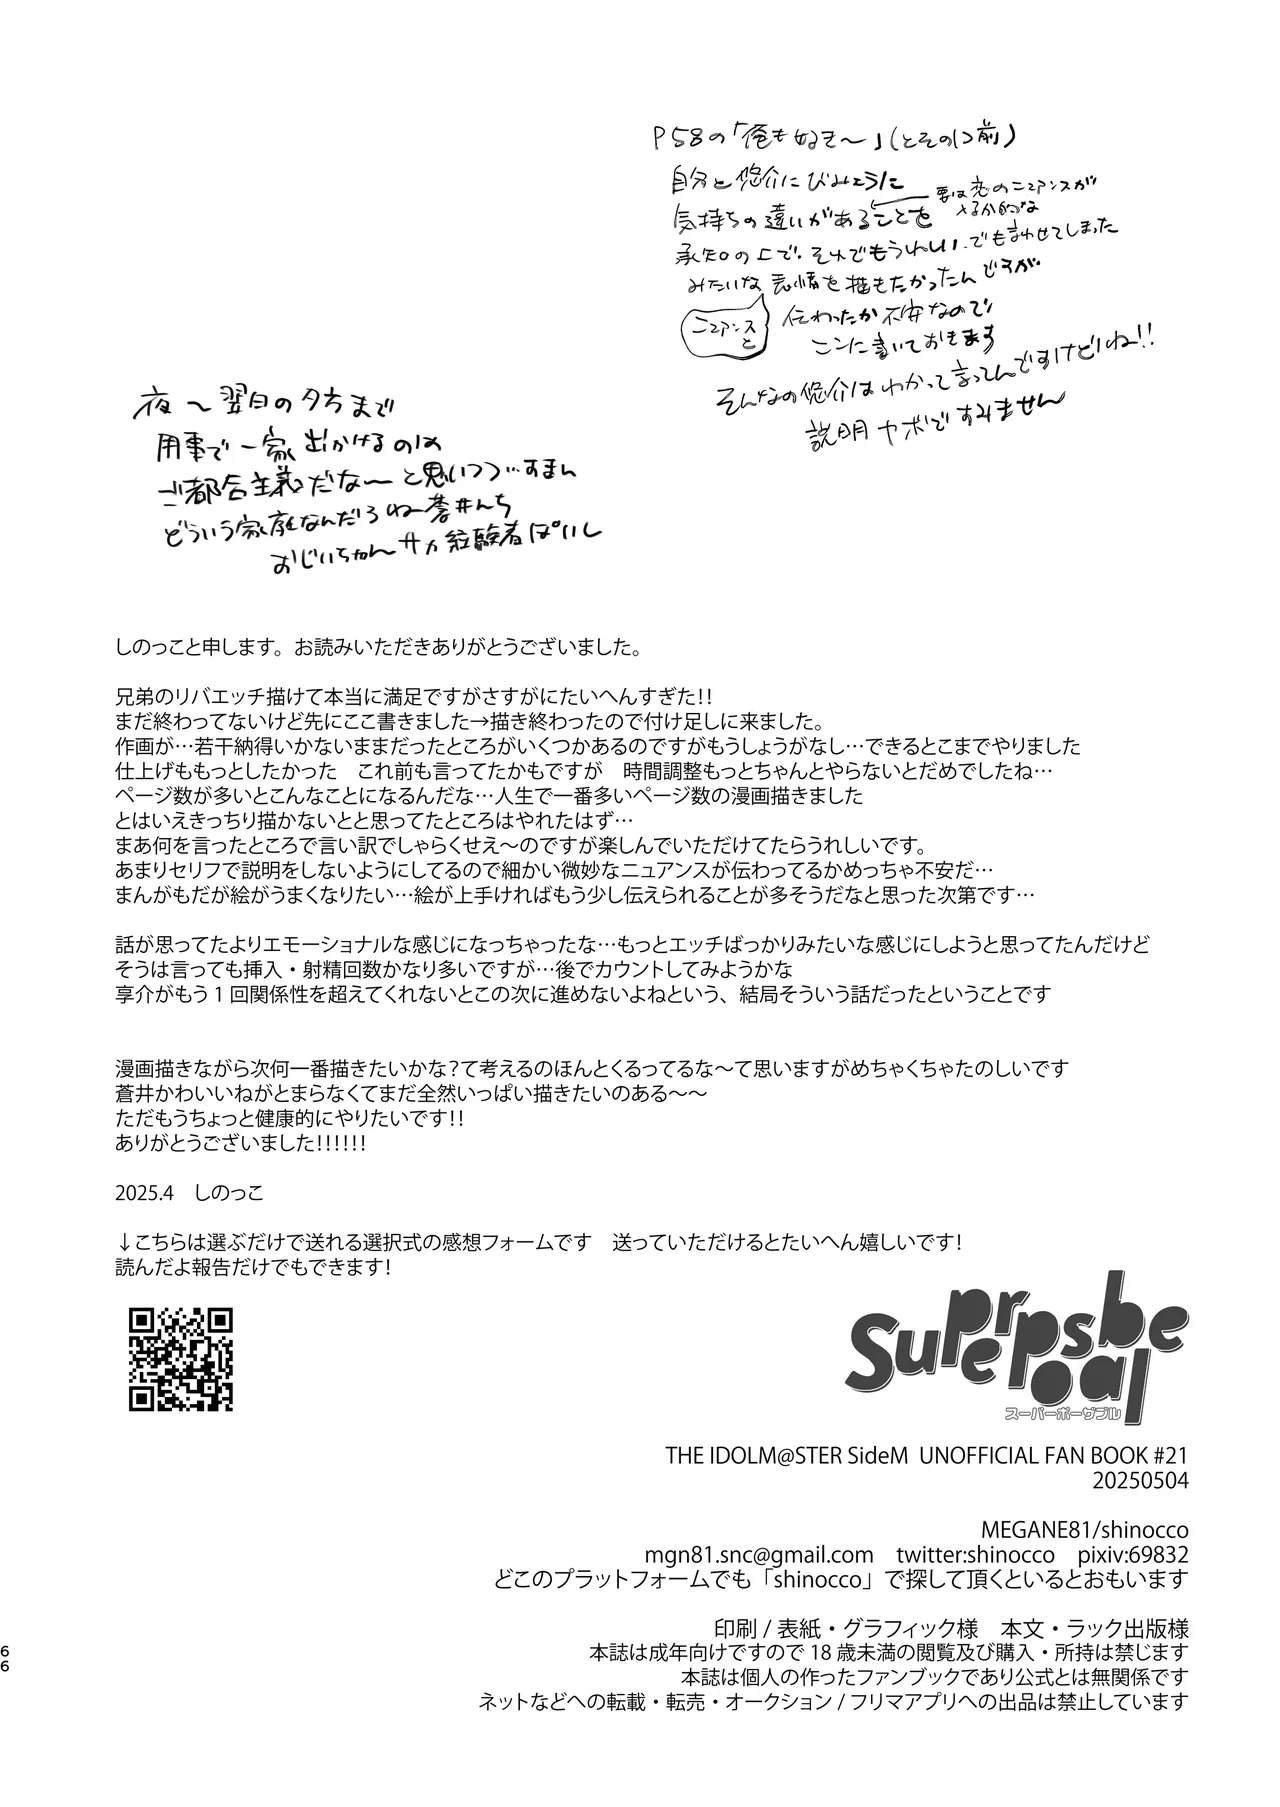 P58の「俺も好き〜」(とその1つ前)
自分と悠介にびみょうに
気持ちの違いがあることを
要は恋のニュアンスが
あるか的な
承知の上で、それでもうれしい、でも言わせてしまった
みたいな表情を描きたかったんですが
ニュアンス
と
伝わったか不安なので
ここに書いておきます
そんなの悠介はわかって言ってんですけどね!!
説明ヤボですみません
夜〜翌日の夕方まで
用事で一家出かけるのは
ご都合主義だな〜と思いつつ…すまん
どういう家庭なんだろね蒼井んち
おじいちゃんサカ経験者ぽいし
しのっこと申します。お読みいただきありがとうございました。
兄弟のリバエッチ描けて本当に満足ですがさすがにたいへんすぎた!!
まだ終わってないけど先にここ書きました→描き終わったので付け足しに来ました。
作画が…若干納得いかないままだったところがいくつかあるのですがもうしょうがなし…できるとこまでやりました
仕上げももっとしたかった　これ前も言ってたかもですが　時間調整もっとちゃんとやらないとだめでしたね…
ページ数が多いとこんなことになるんだな…人生で一番多いページ数の漫画描きました
とはいえきっちり描かないとと思ってたところはやれたはず…
まあ何を言ったところで言い訳でしゃらくせえ〜のですが楽しんでいただけてたらうれしいです。
あまりセリフで説明をしないようにしてるので細かい微妙なニュアンスが伝わってるかめっちゃ不安だ…
まんがもだが絵がうまくなりたい…絵が上手ければもう少し伝えられることが多そうだなと思った次第です…
話が思ってたよりエモーショナルな感じになっちゃったな…もっとエッチばっかりみたいな感じにしようと思ってたんだけど
そうは言っても挿入・射精回数かなり多いですが…後でカウントしてみようかな
享介がもう1回関係性を超えてくれないとこの次に進めないよねという、結局そういう話だったということです
漫画描きながら次何一番描きたいかな?て考えるのほんとくるってるな〜て思いますがめちゃくちゃたのしいです
蒼井かわいいねがとまらなくてまだ全然いっぱい描きたいのある〜〜
ただもうちょっと健康的にやりたいです!!
ありがとうございました!!!!!!
2025.4　しのっこ
↓こちらは選ぶだけで送れる選択式の感想フォームです　送っていただけるとたいへん嬉しいです!
読んだよ報告だけでもできます!
Superposable
スーパーポーザブル
THE IDOLM@STER SideM UNOFFICIAL FAN BOOK #21
20250504
MEGANE81/shinocco
mgn81.snc@gmail.com　twitter:shinocco　pixiv:69832
どこのプラットフォームでも「shinocco」で探して頂くといるとおもいます
印刷 / 表紙・グラフィック様　本文・ラック出版様
本誌は成年向けですので18歳未満の閲覧及び購入・所持は禁じます
本誌は個人の作ったファンブックであり公式とは無関係です
ネットなどへの転載・転売・オークション / フリマアプリへの出品は禁止しています
66